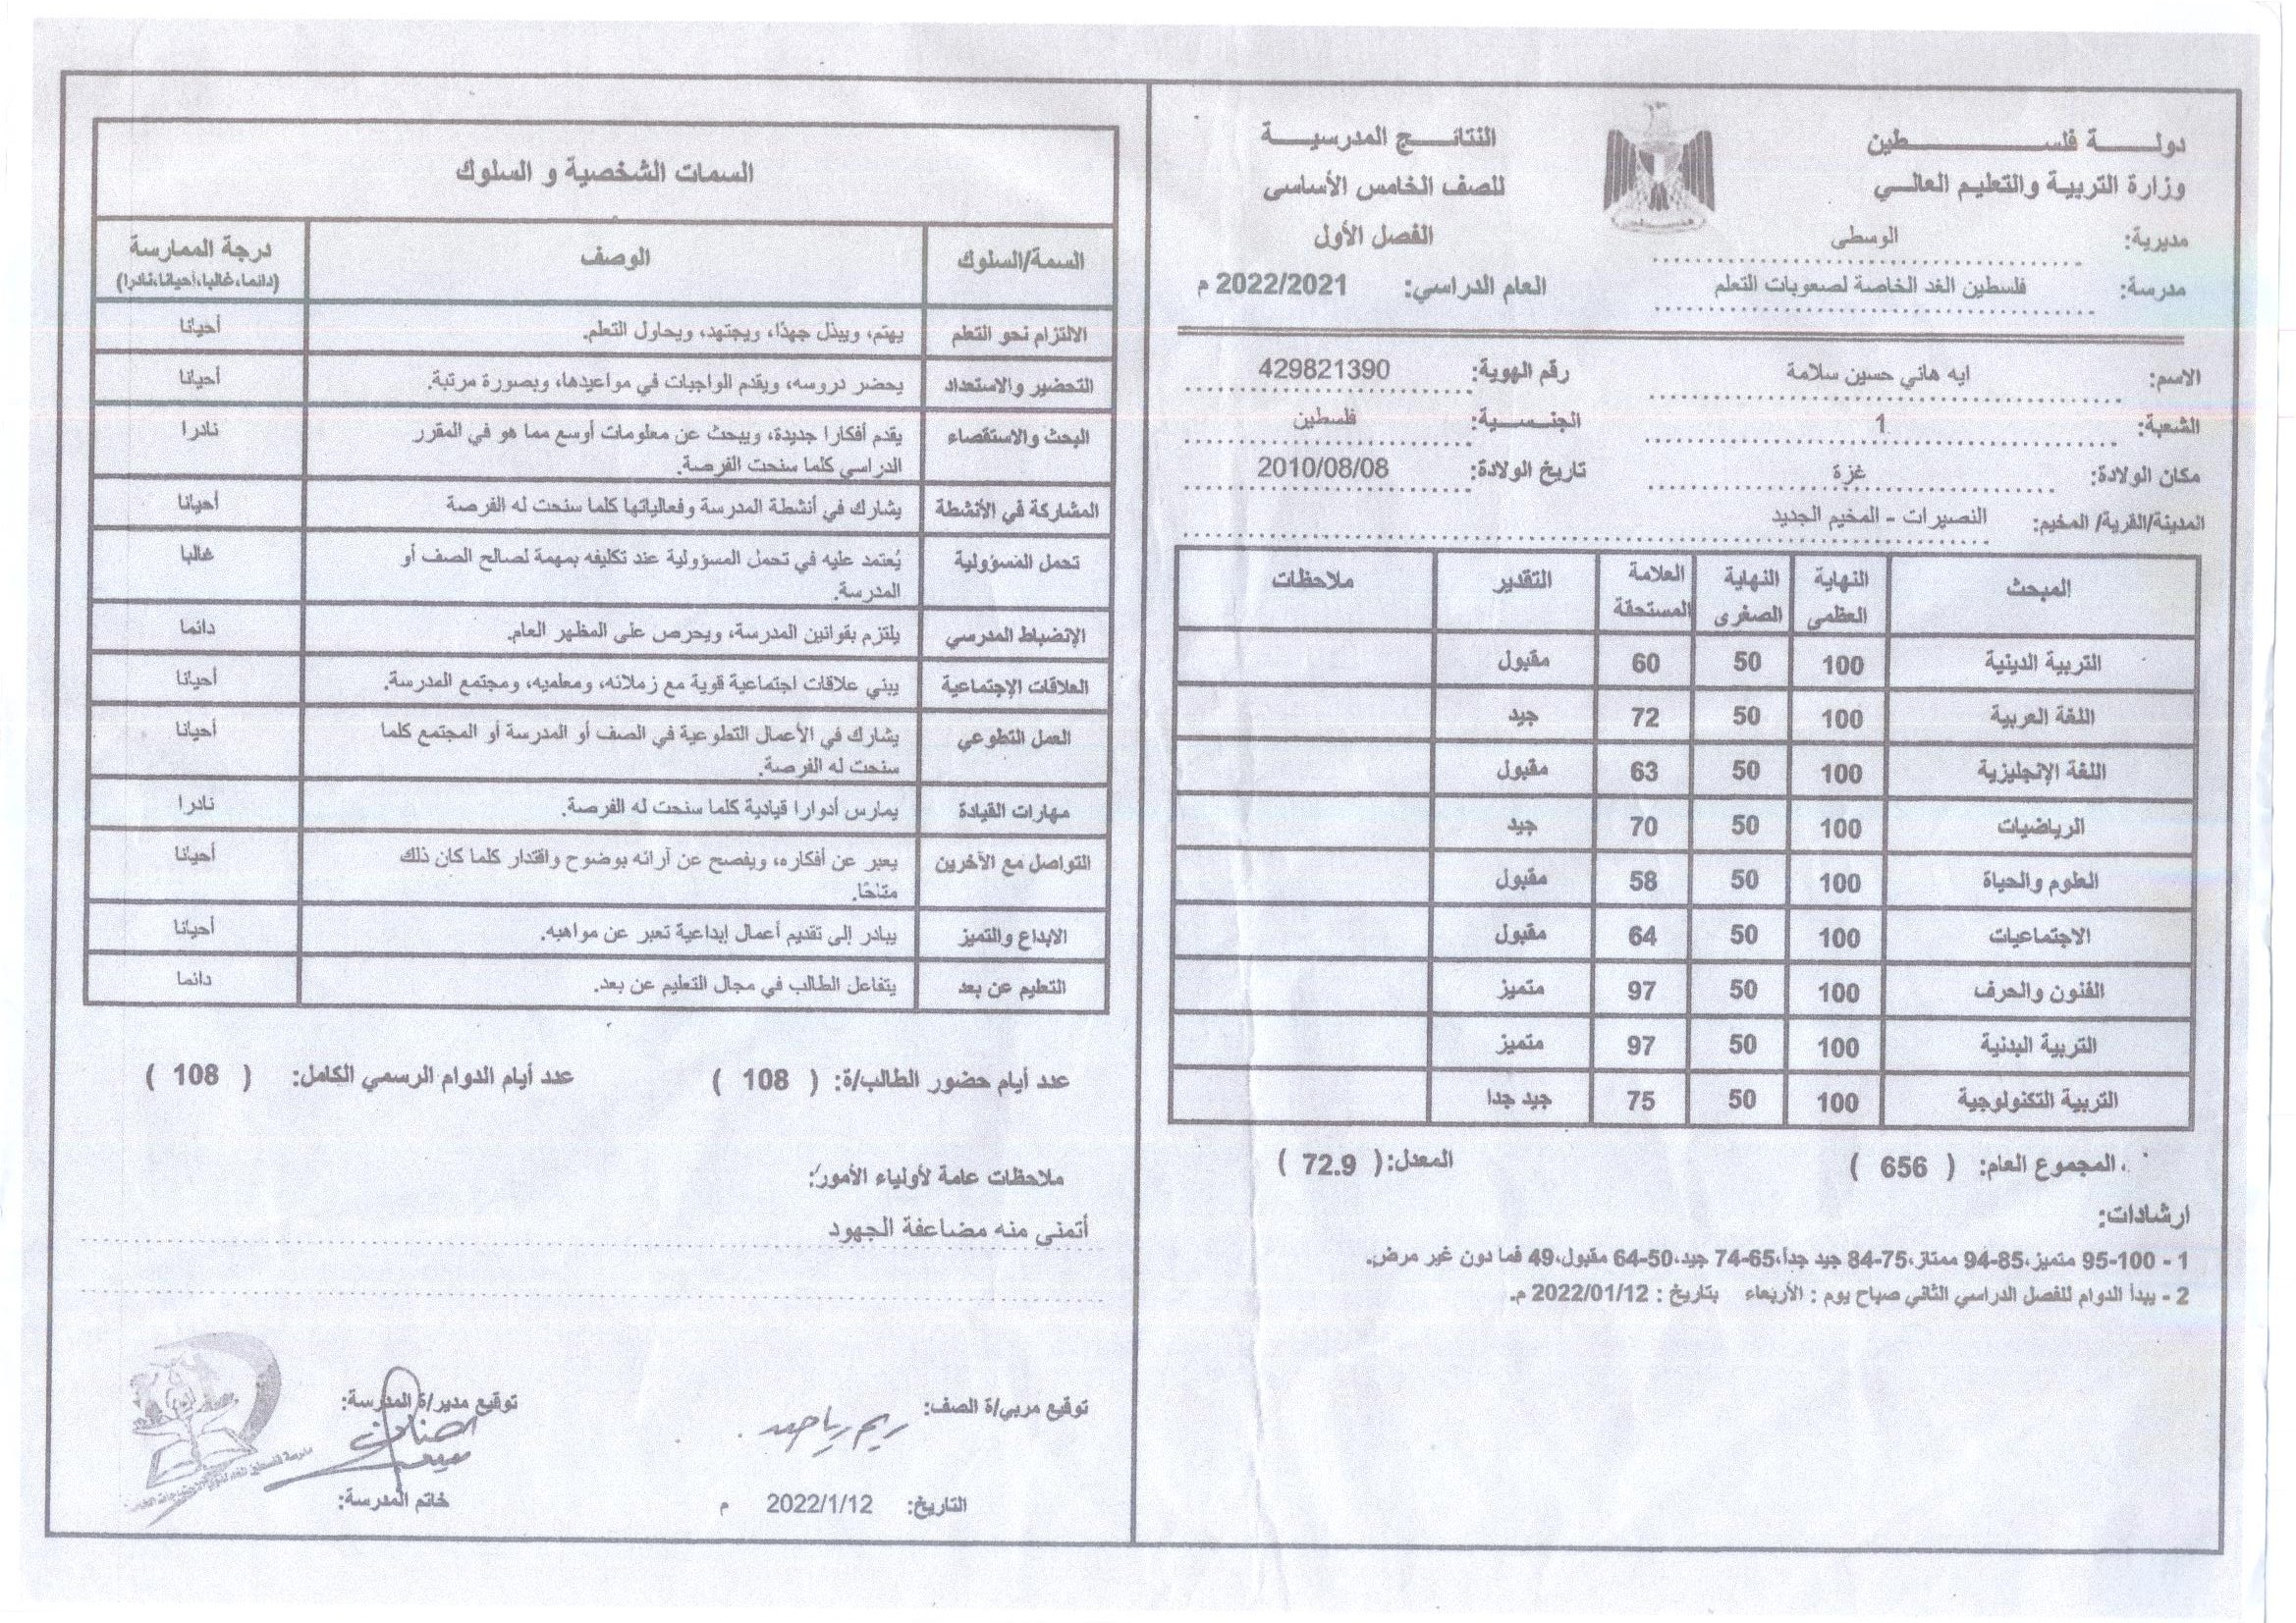 دولة فلسطين
وزارة التربية والتعليم العالي
مديرية: الوسطى
مدرسة: فلسطين الغد الخاصة لصعوبات التعلم
النتائج المدرسية
للصف الخامس الأساسى
الفصل الأول
العام الدراسي: 2022/2021 م
الاسم: ايه هاني حسين سلامة رقم الهوية: 429821390
الشعبة: 1 الجنسية: فلسطين
مكان الولادة: غزة تاريخ الولادة: 2010/08/08
المدينة/القرية/ المخيم: النصيرات - المخيم الجديد
المبحث النهاية العظمى النهاية الصغرى العلامة المستحقة التقدير ملاحظات
التربية الدينية 100 50 60 مقبول
اللغة العربية 100 50 72 جيد
اللغة الإنجليزية 100 50 63 مقبول
الرياضيات 100 50 70 جيد
العلوم والحياة 100 50 58 مقبول
الاجتماعيات 100 50 64 مقبول
الفنون والحرف 100 50 97 متميز
التربية البدنية 100 50 97 متميز
التربية التكنولوجية 100 50 75 جيد جدا
المجموع العام: ( 656 ) المعدل: ( 72.9 )
ارشادات:
1 - 100-95 متميز،85-94 ممتاز،75-84 جيد جداً،65-74 جيد،50-64 مقبول،49 فما دون غير مرض.
2 - يبدأ الدوام للفصل الدراسي الثاني صباح يوم : الأربعاء بتاريخ : 2022/01/12 م.
السمات الشخصية و السلوك
السمة/السلوك الوصف درجة الممارسة
(دائما،غالبا،أحيانا،نادرا)
الالتزام نحو التعلم يهتم، ويبذل جهدًا، ويجتهد، ويحاول التعلم. أحيانا
التحضير والاستعداد يحضر دروسه، ويقدم الواجبات في مواعيدها، وبصورة مرتبة. أحيانا
البحث والاستقصاء يقدم أفكارا جديدة، ويبحث عن معلومات أوسع مما هو في المقرر نادرا
الدراسي كلما سنحت الفرصة.
المشاركة في الأنشطة يشارك في أنشطة المدرسة وفعالياتها كلما سنحت له الفرصة أحيانا
تحمل المسؤولية يُعتمد عليه في تحمل المسؤولية عند تكليفه بمهمة لصالح الصف أو غالبا
المدرسة.
الإنضباط المدرسي يلتزم بقوانين المدرسة، ويحرص على المظهر العام. دائما
العلاقات الإجتماعية يبني علاقات اجتماعية قوية مع زملائه، ومعلميه، ومجتمع المدرسة. أحيانا
العمل التطوعي يشارك في الأعمال التطوعية في الصف أو المدرسة أو المجتمع كلما أحيانا
سنحت له الفرصة.
مهارات القيادة يمارس أدوارا قيادية كلما سنحت له الفرصة. نادرا
التواصل مع الآخرين يعبر عن أفكاره، ويفصح عن آرائه بوضوح واقتدار كلما كان ذلك أحيانا
متاحًا.
الابداع والتميز يبادر إلى تقديم أعمال إبداعية تعبر عن مواهبه. أحيانا
التعليم عن بعد يتفاعل الطالب في مجال التعليم عن بعد. دائما
عدد أيام حضور الطالب/ة: ( 108 ) عدد أيام الدوام الرسمي الكامل: ( 108 )
ملاحظات عامة لأولياء الأمور:
أتمنى منه مضاعفة الجهود
توقيع مربي/ة الصف: ريم توقيع مدير/ة المدرسة:
التاريخ: 2022/1/12 م خاتم المدرسة: